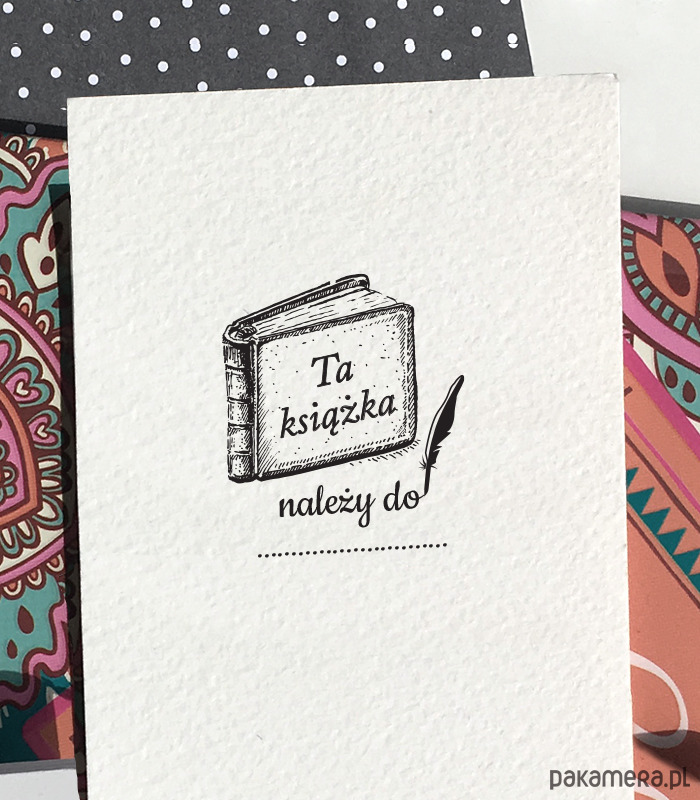 Ta
książka
należy do
..............................
pakamera.pl